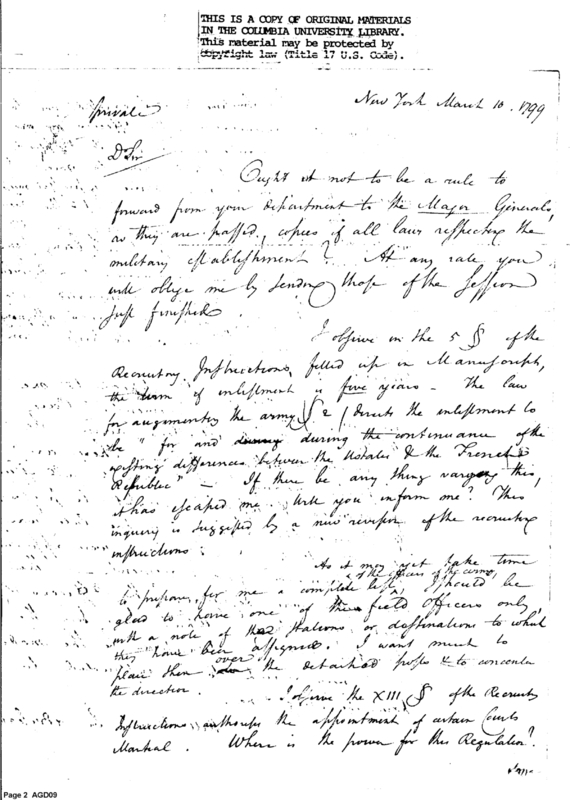 THIS IS A COPY OF ORIGINAL MATERIALS
IN THE COLUMBIA UNIVERSITY LIBRARY.
This material may be protected by
copyright law (Title 17 U.S. Code).
New York March 10. 1799
private
Dr Sir
Ought it not to be a rule to
forward from your department to the Major Generals,
as they are passed, copies of all laws respecting the
military establishment? At any rate you
will oblige me by sending those of the Session
just finished
I observe in the 5 § of the
Recruiting Instructions, filled up in Manuscript,
the term of inlistment is five years – The law
for augmenting the army § 2 directs the inlistment to
be "for and during the continuance of the
existing differences between the UStates & the French
Republic" – If there be any thing varying this,
it has escaped me. Will you inform me? This
inquiry is suggested by a new revision of the recruiting
instructions.
As it may yet take time
to prepare for me a complete list of the officers of the army, I should be
glad to have one of the field Officers only
with a note of the Stations or destinations to which
they have been assigned. I want much to
place them over the detached posts & to concenter
the direction.
I observe the XIII § of the Recruiting
Instructions authorises the appointment of certain Courts
Martial. Where is the power for this Regulation?
Page 2 AGD09